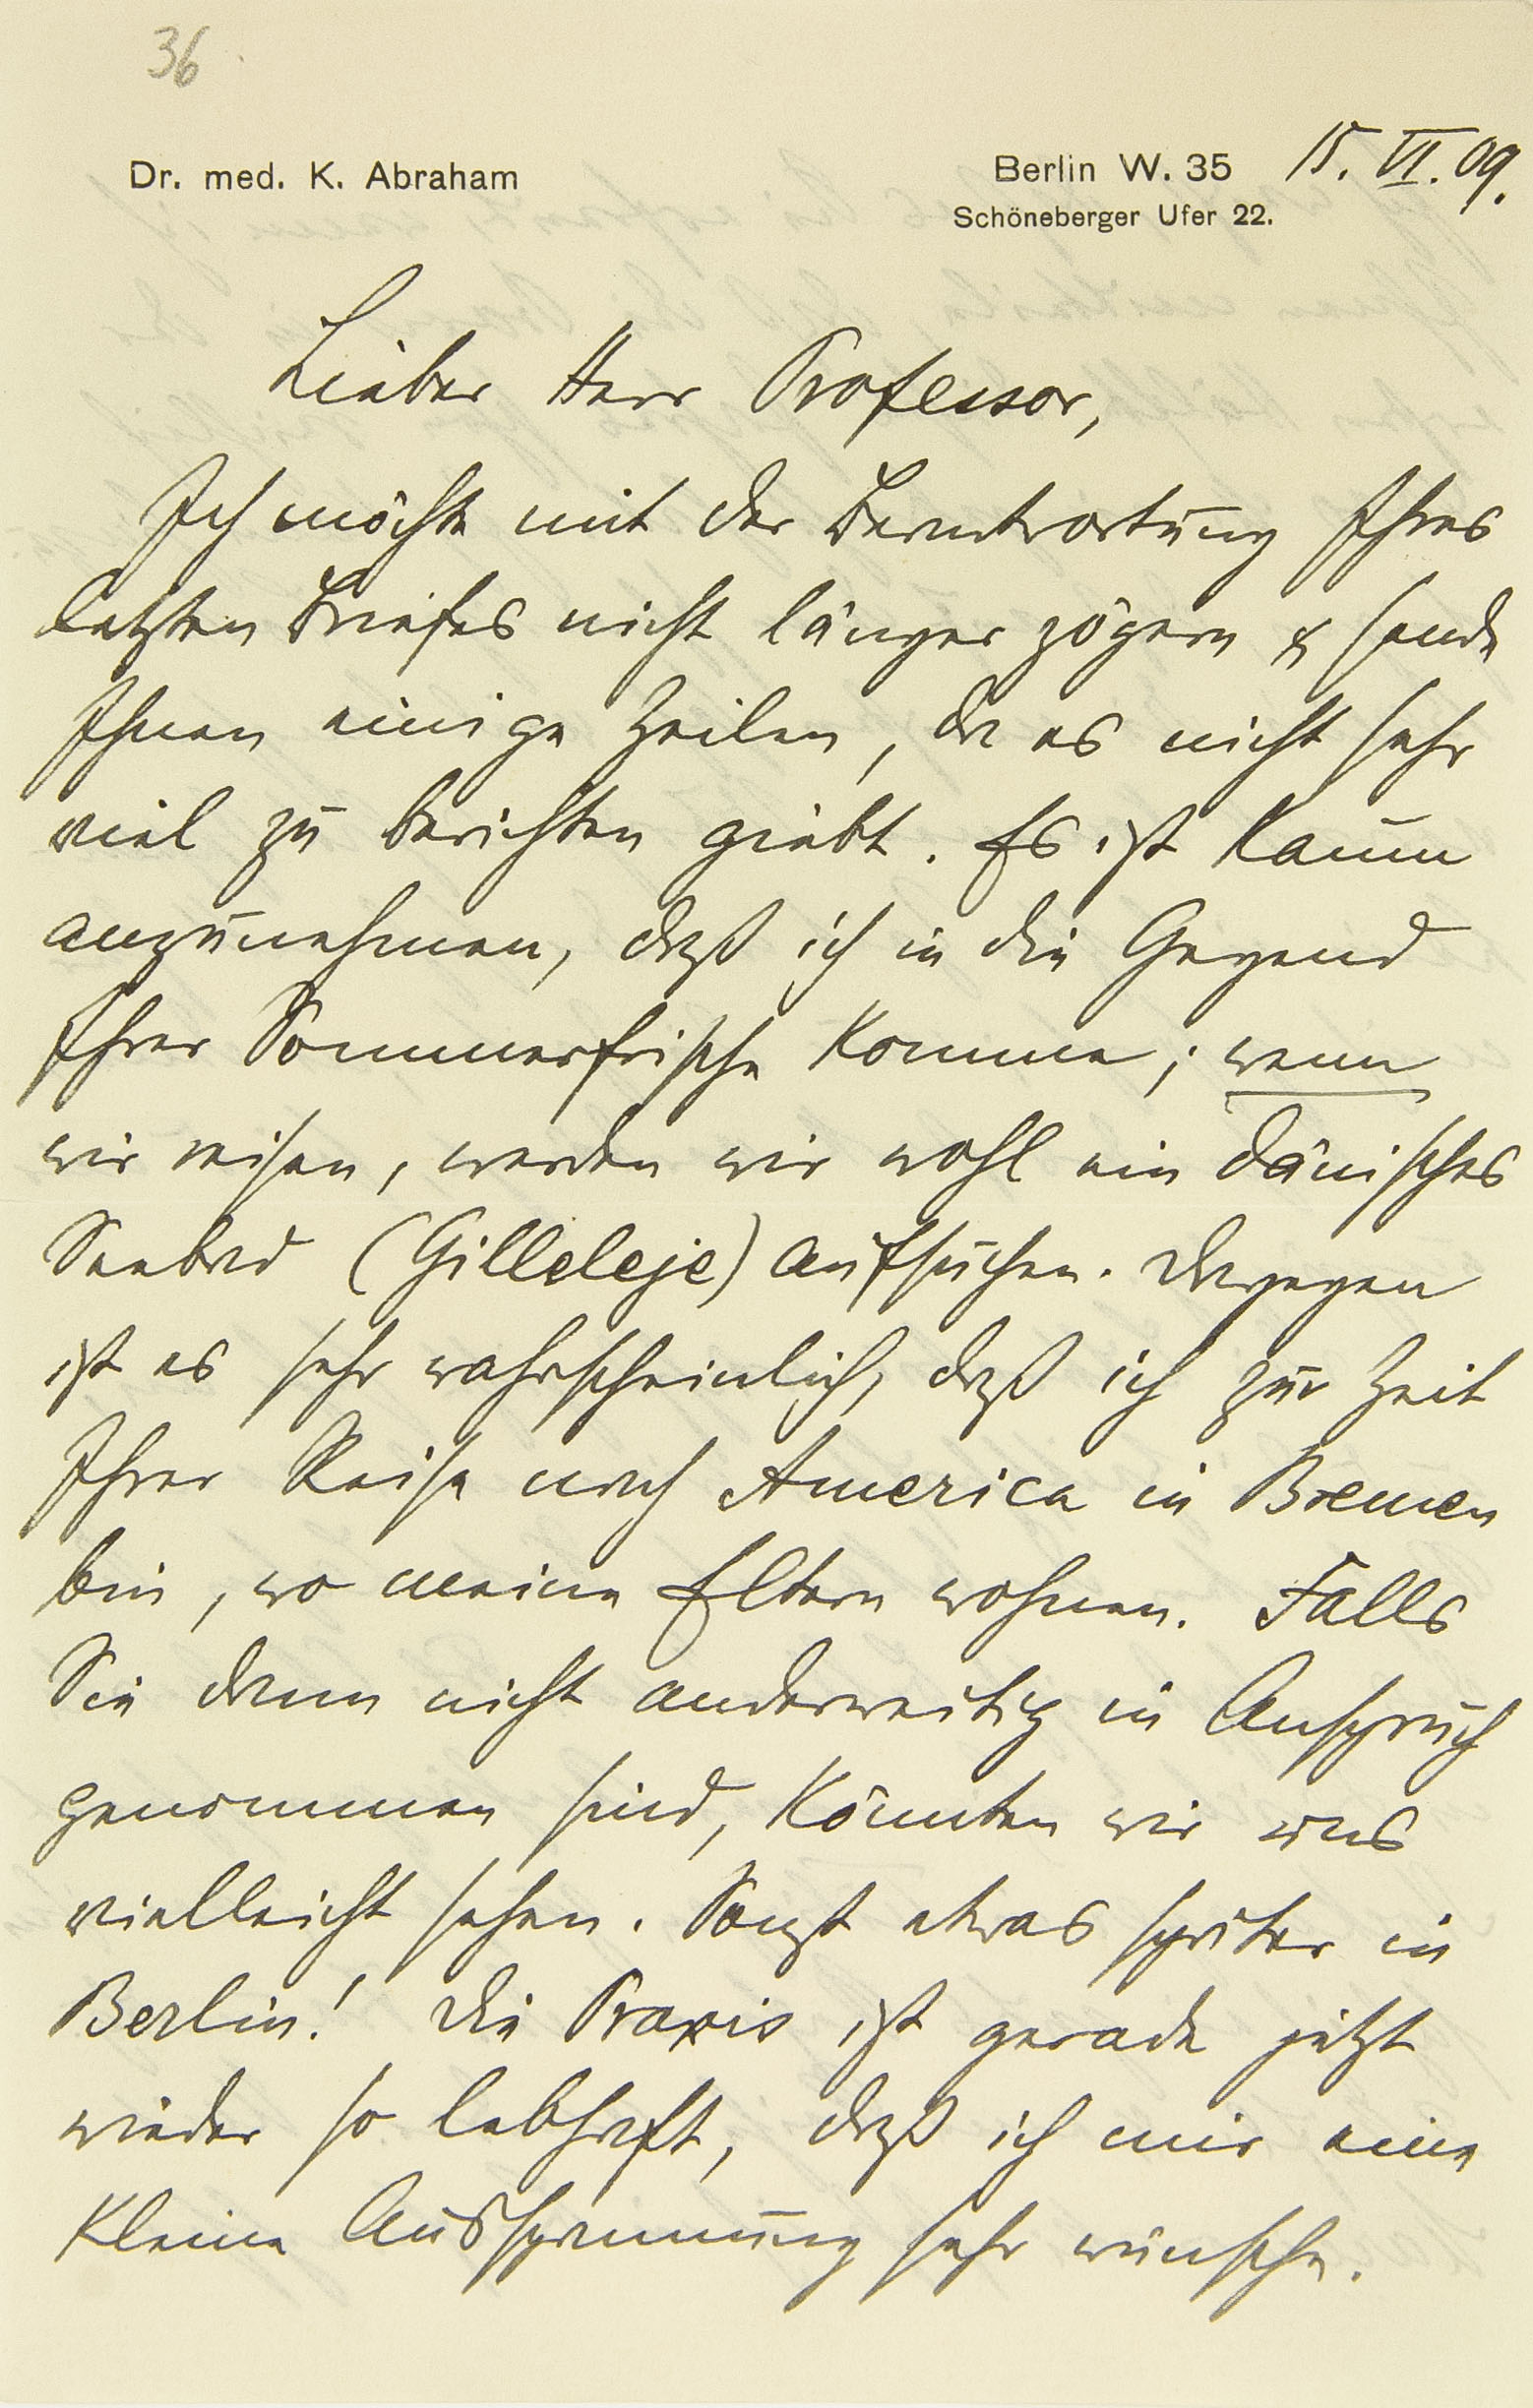 36
Dr. med. K. Abraham
Berlin W. 35 15. VI. 09.
Schöneberger Ufer 22.
Lieber Herr Professor,
Ich möchte mit der Beantwortung Ihres
letzten Briefes nicht länger zögern & sende
Ihnen einige Zeilen, da es nicht sehr
viel zu berichten giebt. Es ist kaum
anzunehmen, daß ich in die Gegend
Ihrer Sommerfrische komme; wenn
wir reisen, werden wir wohl ein dänisches
Seebad (Gilleleje) aufsuchen. Dagegen
ist es sehr wahrscheinlich, daß ich zur Zeit
Ihrer Reise nach America in Bremen
bin, wo meine Eltern wohnen. Falls
Sie dann nicht anderweitig in Anspruch
genommen sind, könnten wir uns
vielleicht sehen. Sonst etwas später in
Berlin! Die Praxis ist gerade jetzt
wieder so lebhaft, daß ich mir eine
kleine Ausspannung sehr wünsche.